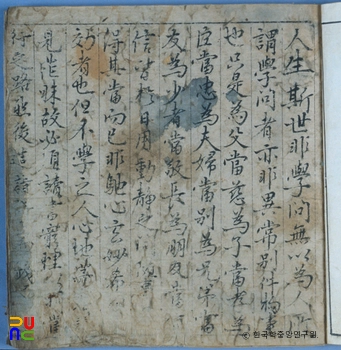 人生斯世非學問無以為人所
謂學問者亦非異常別件物事
也只是為父當慈為子當孝為
臣當忠為夫婦當別為兄弟當
友為少者當敬長為朋友當有
信皆於日用動靜之間隨事
得其當而已非馳心玄妙希
効者也但不學之人心地茅
見茫昧故必須讀書窮理
行之路然後造詣
© 한국학중앙연구원